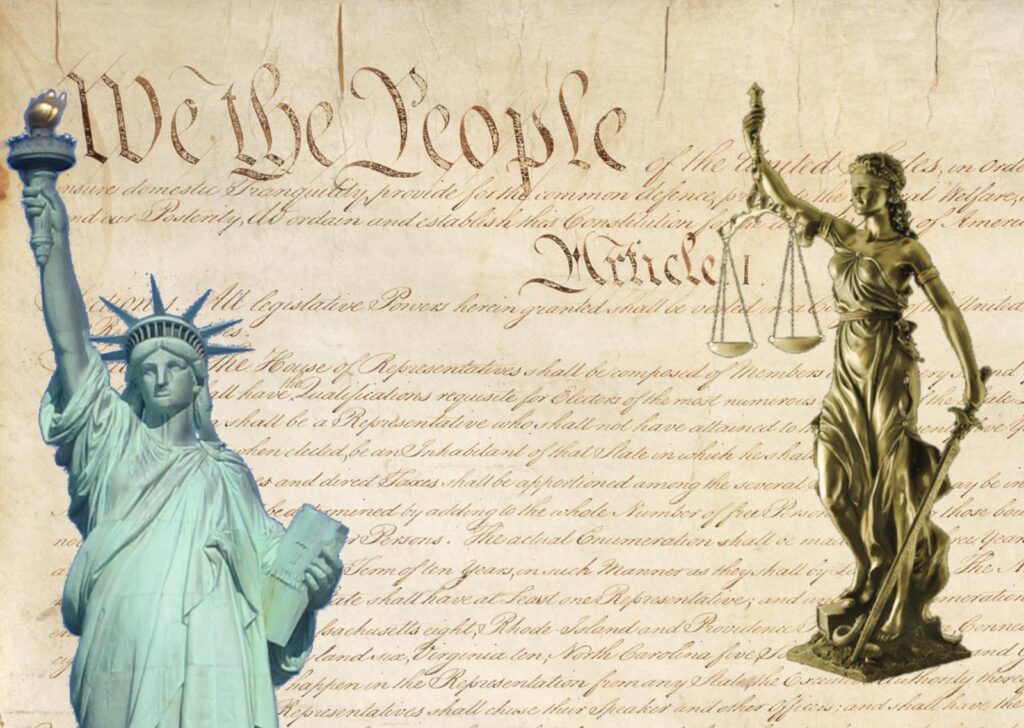 We the People of the United tes, in orde
nsure domestic Tranquility, provide for the common defence, the al Welfare,
nd our Posterity, do ordain and establish this Constitution for of Americ
Article I
All legislative Powers herein granted shall be vested in a United
The House of Representatives shall be composed of Members
all have the Qualifications requisite for Electors of the most numerous
shall be a Representative who shall not have attained to
when elected, be an Inhabitant of that State in which he shal
es and direct Taxes shall be apportioned among the several ay be in
be determined by adding to the whole Number of free Person those bou
r Persons. The actual Enumeration shall be made Year
Term of ten Years, in such Manner as they shall by The N
ate shall have at Least one Representative; and un meration
ssachusetts eight, Rhode-Island and Providence Connec
yland six, Virginia ten, North Carolina five,
happen in the Representation from any State, the Executive Authority there
shall chuse their Speaker and other Officers; and shall have the